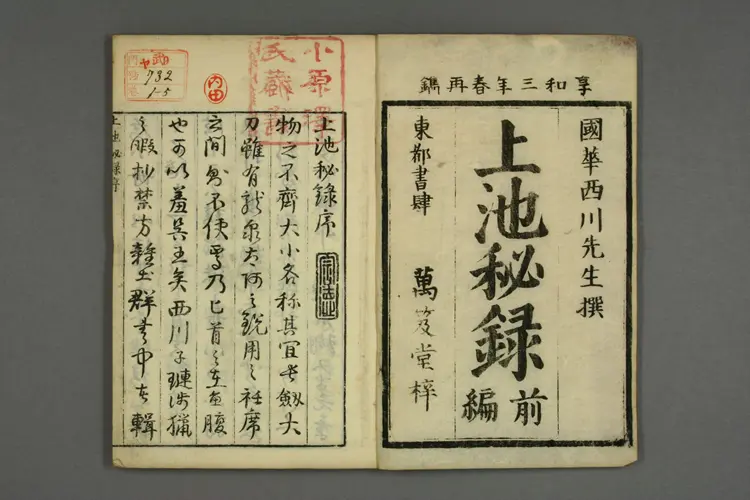 享和三年春再鐫
國華西川先生撰
上池秘録
前
編
東都書肆
萬笈堂梓
小原擇
氏藏書
上池秘録序
物之不齊大小各称其宜長劔大
刀雖有龍泉太阿之鋭用之衽席
之間則不便焉乃匕首之在魚腹
也可以羞呉王矣西川子璉渉猟
之暇抄禁方雜出群書中者輯
上池秘録序
内田
732
1-5